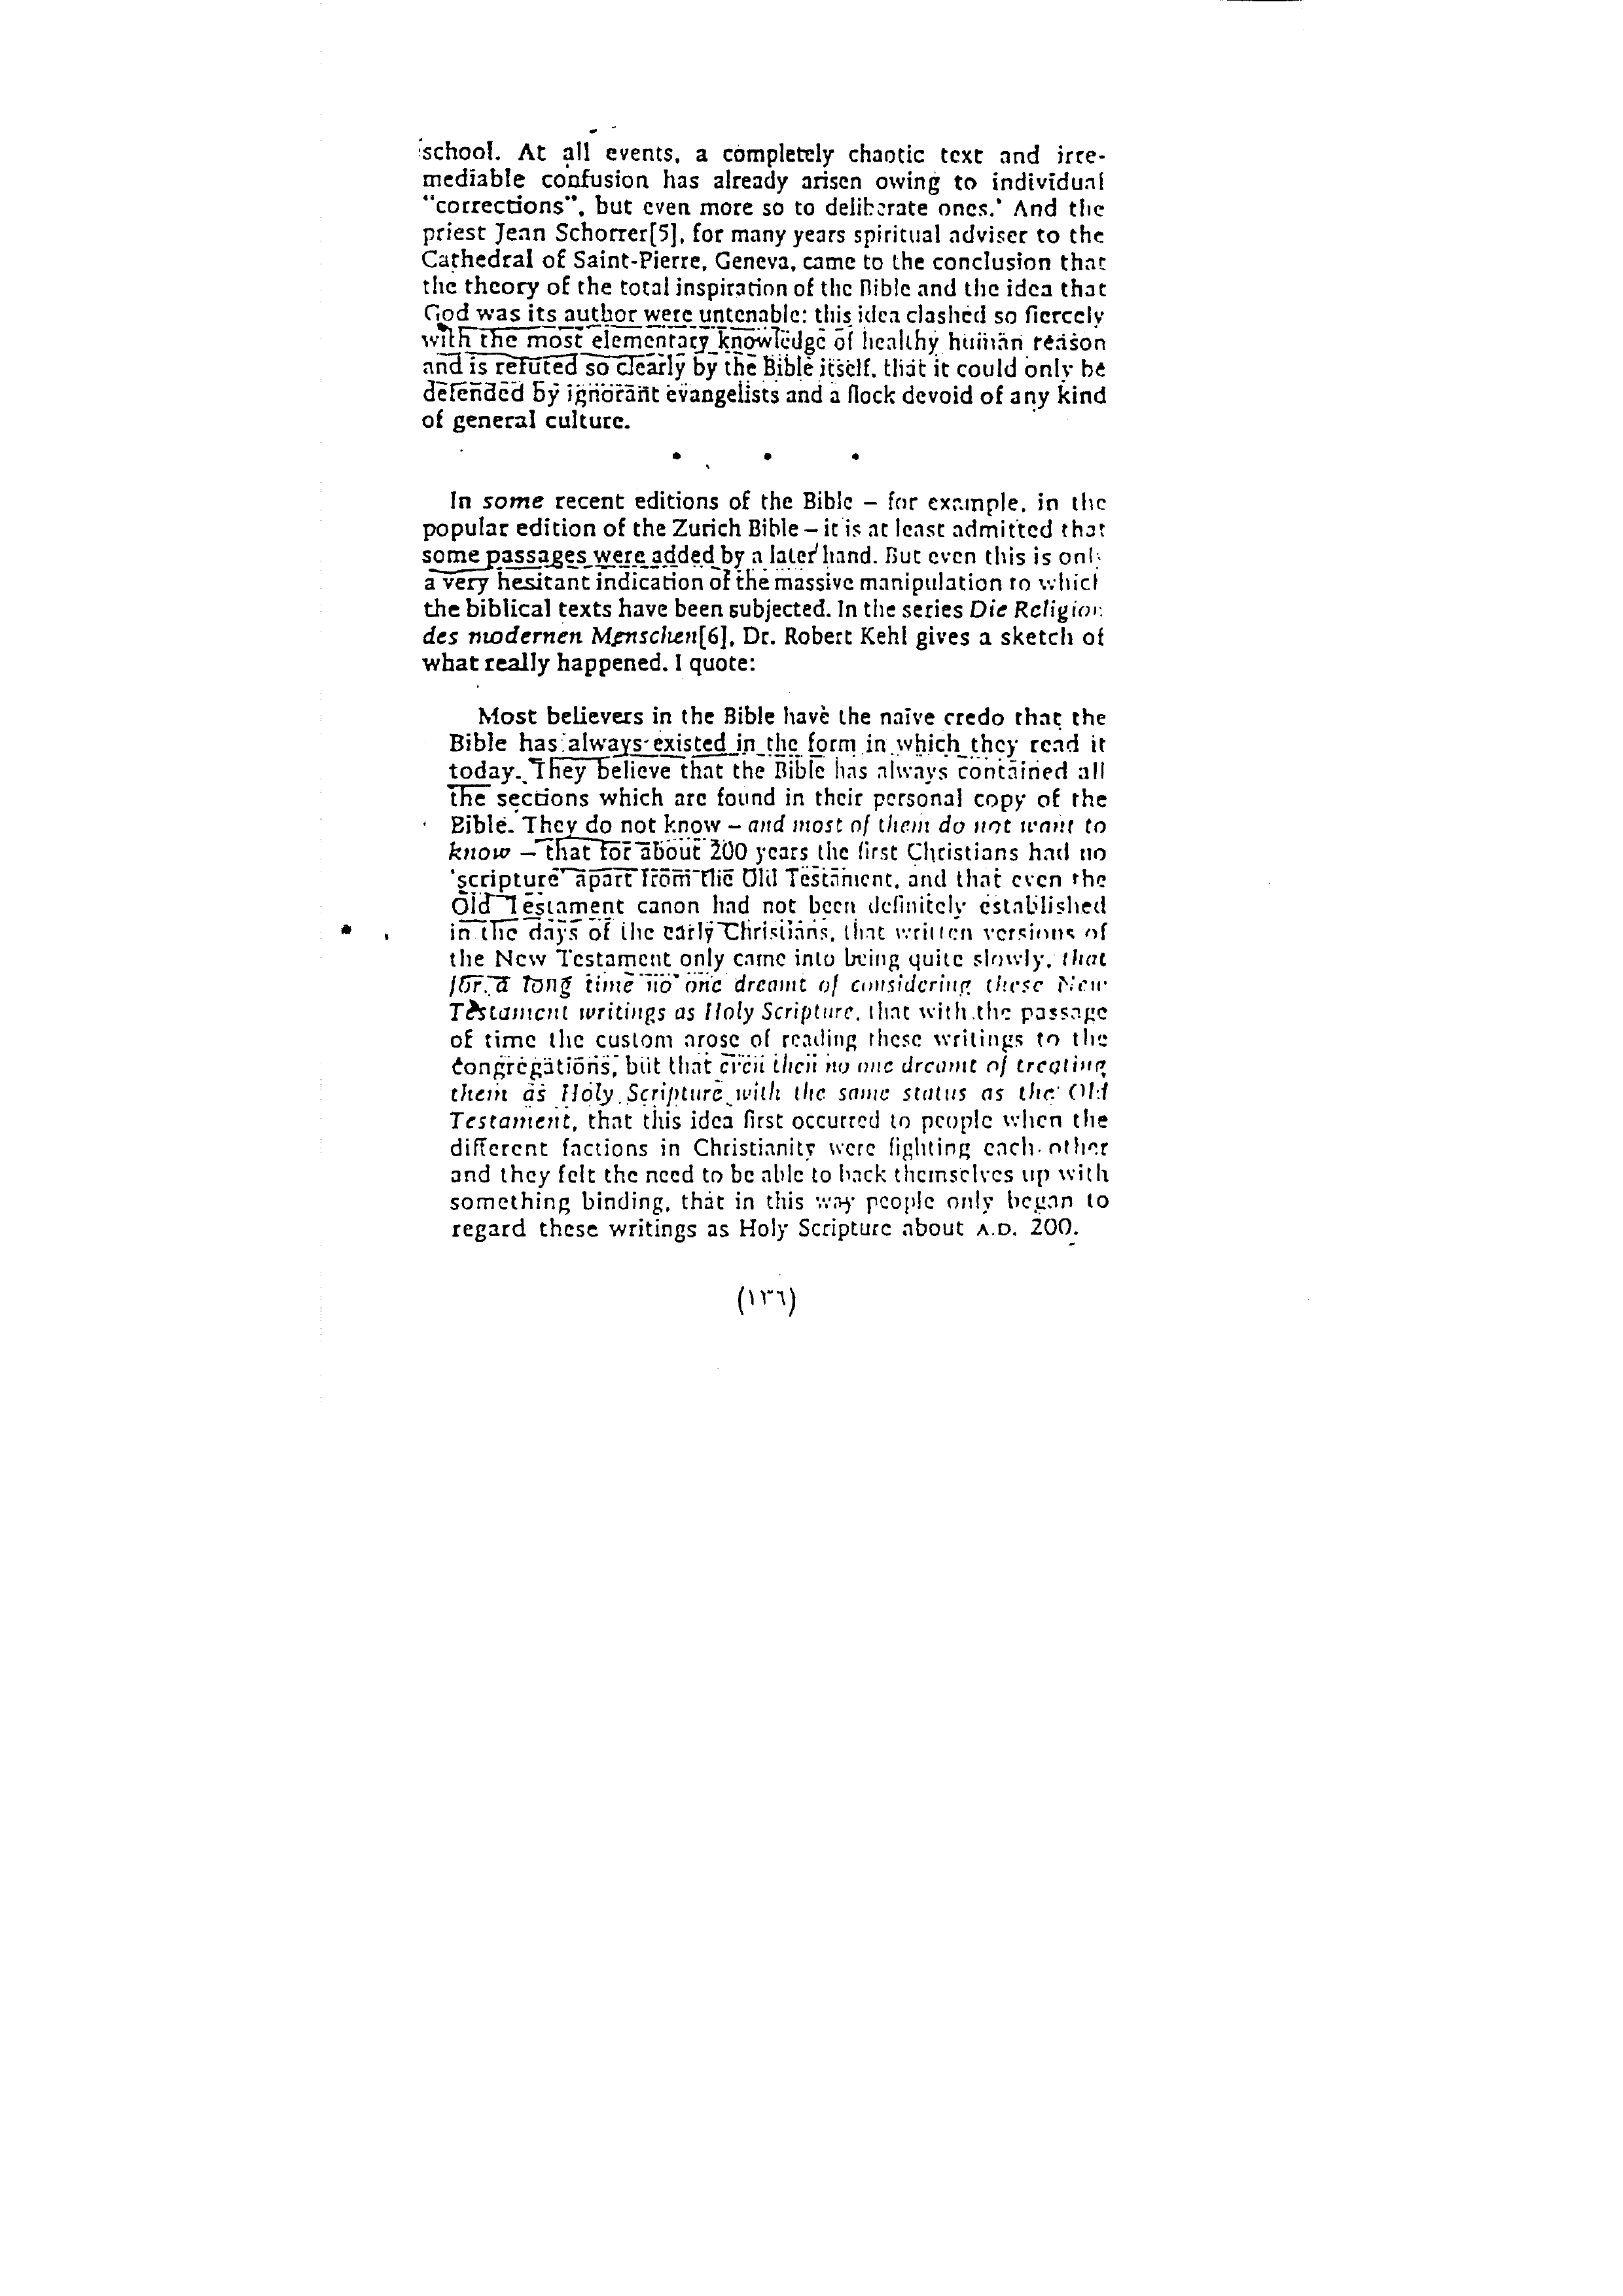 school. At all events, a completely chaotic text and irre-
mediable confusion has already arisen owing to individual
"corrections", but even more so to deliberate ones.' And the
priest Jean Schorrer[5], for many years spiritual adviser to the
Cathedral of Saint-Pierre, Geneva, came to the conclusion that
the theory of the total inspiration of the Bible and the idea that
God was its author were untenable: this idea clashed so fiercely
with the most elementary knowledge of healthy human reason
and is refuted so clearly by the Bible itself, that it could only be
defended by ignorant evangelists and a flock devoid of any kind
of general culture.
• • •
In some recent editions of the Bible – for example, in the
popular edition of the Zurich Bible – it is at least admitted that
some passages were added by a later hand. But even this is only
a very hesitant indication of the massive manipulation to which
the biblical texts have been subjected. In the series Die Religion
des modernen Menschen[6], Dr. Robert Kehl gives a sketch of
what really happened. I quote:
Most believers in the Bible have the naïve credo that the
Bible has always existed in the form in which they read it
today. They believe that the Bible has always contained all
the sections which are found in their personal copy of the
Bible. They do not know – and most of them do not want to
know – that for about 200 years the first Christians had no
'scripture' apart from the Old Testament, and that even the
Old Testament canon had not been definitely established
in the days of the early Christians, that written versions of
the New Testament only came into being quite slowly, that
for a long time no one dreamt of considering these New
Testament writings as Holy Scripture, that with the passage
of time the custom arose of reading these writings to the
congregations, but that even then no one dreamt of treating
them as Holy Scripture with the same status as the Old
Testament, that this idea first occurred to people when the
different factions in Christianity were fighting each other
and they felt the need to be able to back themselves up with
something binding, that in this way people only began to
regard these writings as Holy Scripture about A.D. 200.
(١٣٦)